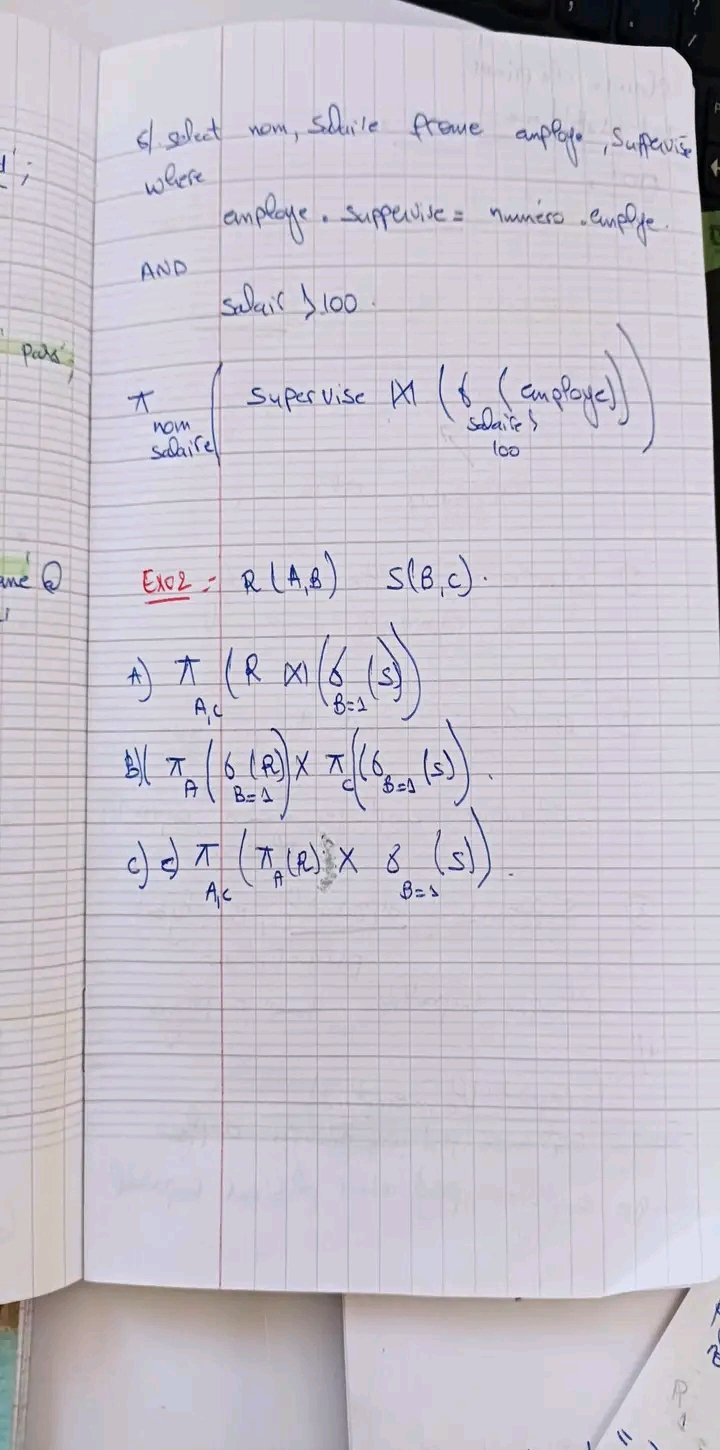 6/ select nom, Salaire frome employe, Suppervise
where
employe. suppervise = numéro.employe.
AND
salair > 100.
π nom salaire ( Supervise ⋈ ( σ salaire > 100 (employe)))
Exo2 :- R(A,B) S(B,C).
A) π A,C (R ⋈ (σ B=1 (S))
B)( π A (σ B=1 (R)) X π C ((σ B=1 (S)).
C) c) π A,C (π A (R) X σ B=1 (S)).
pass;